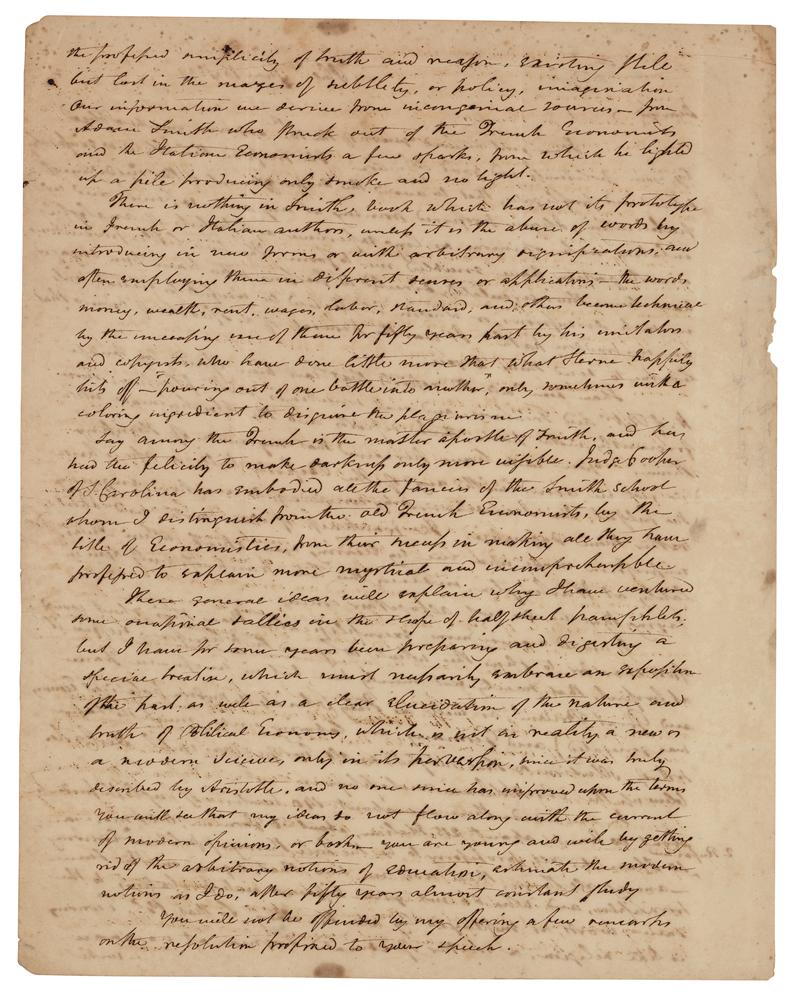 the professed simplicity of truth and reason, existing still
but lost in the mazes of subtlety, or policy, imagination
Our information we derive from incongenial sources — from
Adam Smith who struck out of the French Economists
and the Italian Economists a few sparks, from which he lighted
up a pile producing only smoke and no light.
There is nothing in Smith's book which has not its prototype
in French or Italian authors, unless it is the abuse of words by
introducing in new forms or with arbitrary significations, and
often employing them in different senses or application — the words
money, wealth, rent, wages, labor, standard, and others become technical
by the unceasing use of them for fifty years past by his imitators
and copyists, who have done little more that what Sterne happily
hits off — "pouring out of one bottle into another", only sometimes with a
coloring ingredient to disguise the plagiarism
Say among the French is the master apostle of Smith, and has
had the felicity to make darkness only more visible. Judge Cooper
of S. Carolina has embodied all the fancies of the Smith school
whom I distinguish from the old French Economists, by the
title of Economistics, from their success in making all they have
professed to explain more mystical and incomprehensible.
These general ideas will explain why I have ventured
some occasional sallies in the shape of half sheet pamphlets,
but I have for some years been preparing and digesting a
special treatise, which must necessarily embrace an exposition
of the past as well as a clear Elucidation of the nature and
truth of Political Economy, which is not in reality a new or
a modern science, only in its perversion, since it was truly
described by Aristotle, and no one since has improved upon the terms
You will see that my ideas do not flow along with the current
of modern opinions, or books you are young and will by getting
rid of the arbitrary notions of education, estimate the modern
notions as I do, after fifty years almost constant study
You will not be offended by my offering a few remarks
on the resolution prefixed to your speech.